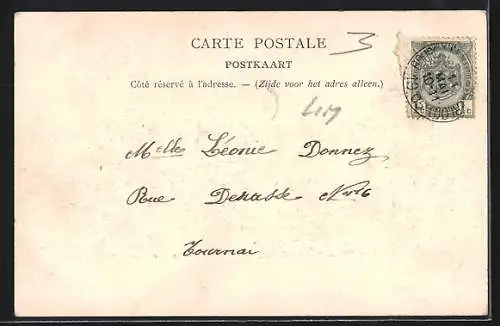 CARTE POSTALE
POSTKAART
Côté réservé à l'adresse. — (Zijde voor het adres alleen.)
3
Melles Léonie Donnez
Rue
Tournai